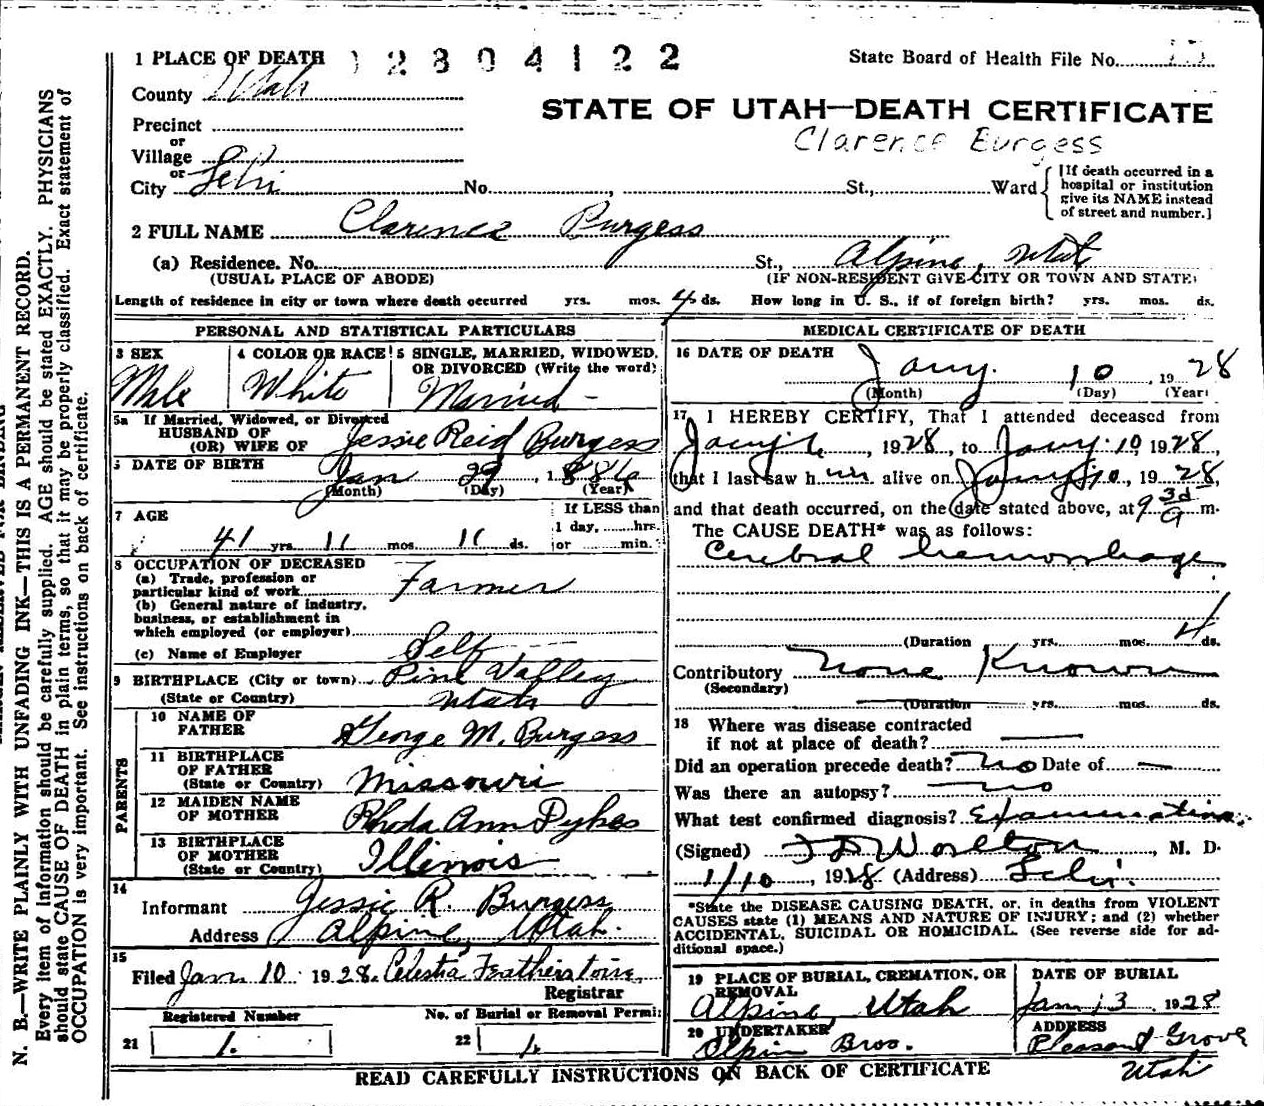 1 PLACE OF DEATH 12804122 State Board of Health File No.
County Utah
STATE OF UTAH—DEATH CERTIFICATE
Precinct
Clarence Burgess
or
Village
or
City Lehi No. , St., Ward
[If death occurred in a hospital or institution give its NAME instead of street and number.]
2 FULL NAME Clarence Burgess
(a) Residence. No. St., Alpine, Utah
(USUAL PLACE OF ABODE) (IF NON-RESIDENT GIVE CITY OR TOWN AND STATE)
Length of residence in city or town where death occurred yrs. mos. 4 ds. How long in U. S., if of foreign birth? yrs. mos. ds.
PERSONAL AND STATISTICAL PARTICULARS
3 SEX 4 COLOR OR RACE 5 SINGLE, MARRIED, WIDOWED,
OR DIVORCED (Write the word)
Male White Married
5a If Married, Widowed, or Divorced
HUSBAND OF
(OR) WIFE OF Jessie Reid Burgess
DATE OF BIRTH Jan 29, 1886
(Month) (Day) (Year)
7 AGE If LESS than
1 day, hrs.
41 yrs. 11 mos. 11 ds. or min.
8 OCCUPATION OF DECEASED
(a) Trade, profession or
particular kind of work Farmer
(b) General nature of industry,
business, or establishment in
which employed (or employer)
(c) Name of Employer Self
9 BIRTHPLACE (City or town) Pine Valley
(State or Country) Utah
PARENTS
10 NAME OF
FATHER George M. Burgess
11 BIRTHPLACE
OF FATHER
(State or Country) Missouri
12 MAIDEN NAME
OF MOTHER Rhoda Ann Dykes
13 BIRTHPLACE
OF MOTHER
(State or Country) Illinois
14
Informant Jessie R. Burgess
Address Alpine, Utah.
15
Filed Jan 10 1928. Celestia Featherstone
Registrar
Registered Number No. of Burial or Removal Permit
21 1. 22 1.
MEDICAL CERTIFICATE OF DEATH
16 DATE OF DEATH
Jany. 10, 1928
(Month) (Day) (Year)
17 I HEREBY CERTIFY, That I attended deceased from
Jany 6, 1928, to Jany. 10, 1928,
that I last saw him alive on Jany 10, 1928,
and that death occurred, on the date stated above, at 9 30 a m.
The CAUSE DEATH* was as follows:
Cerebral hemorrhage
(Duration yrs. mos. 4 ds.
Contributory None Known
(Secondary)
(Duration yrs. mos. ds.
18 Where was disease contracted
if not at place of death?
Did an operation precede death? no Date of —
Was there an autopsy? no
What test confirmed diagnosis? Examination
(Signed) Worlton, M. D.
1/10, 1928 (Address) Lehi.
*State the DISEASE CAUSING DEATH, or, in deaths from VIOLENT
CAUSES state (1) MEANS AND NATURE OF INJURY; and (2) whether
ACCIDENTAL, SUICIDAL OR HOMICIDAL. (See reverse side for ad-
ditional space.)
19 PLACE OF BURIAL, CREMATION, OR
REMOVAL
Alpine, Utah
DATE OF BURIAL
Jan 13 1928
20 UNDERTAKER
Bros.
ADDRESS
Pleasant Grove
Utah
READ CAREFULLY INSTRUCTIONS ON BACK OF CERTIFICATE
N. B.—WRITE PLAINLY WITH UNFADING INK—THIS IS A PERMANENT RECORD.
Every item of information should be carefully supplied. AGE should be stated EXACTLY. PHYSICIANS
should state CAUSE OF DEATH in plain terms, so that it may be properly classified. Exact statement of
OCCUPATION is very important. See instructions on back of certificate.